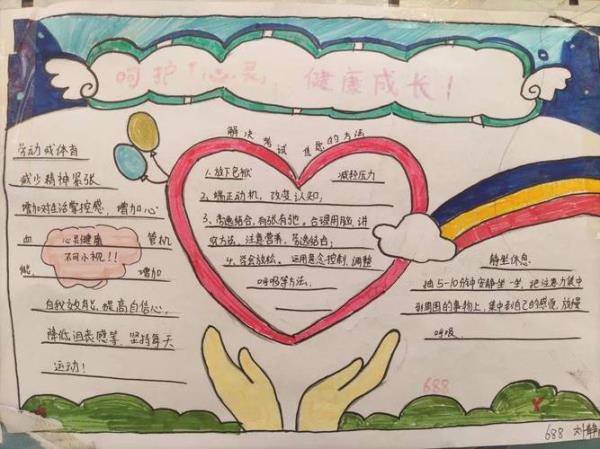 呵护「心灵,健康成长!
解决考试焦虑的方法
劳动或体育
减少精神紧张
增加对生活掌控感,增加心
血管机
能,增加
自我效能,提高自信心,
降低沮丧感等,坚持每天
运动!
心灵健康
不可小视!!
1.放下包袱 减轻压力
2、端正动机,改变认知;
3、劳逸结合,有张有弛。合理用脑,讲
究方法,注意营养,劳逸结合;
4、学会放松。运用意念控制,调整
呼吸等方法。
静坐休息
抽5-10分钟空静坐一坐,把注意力集中
到周围的事物上,集中到自己的感觉,放慢
呼吸。
688
688 刘静